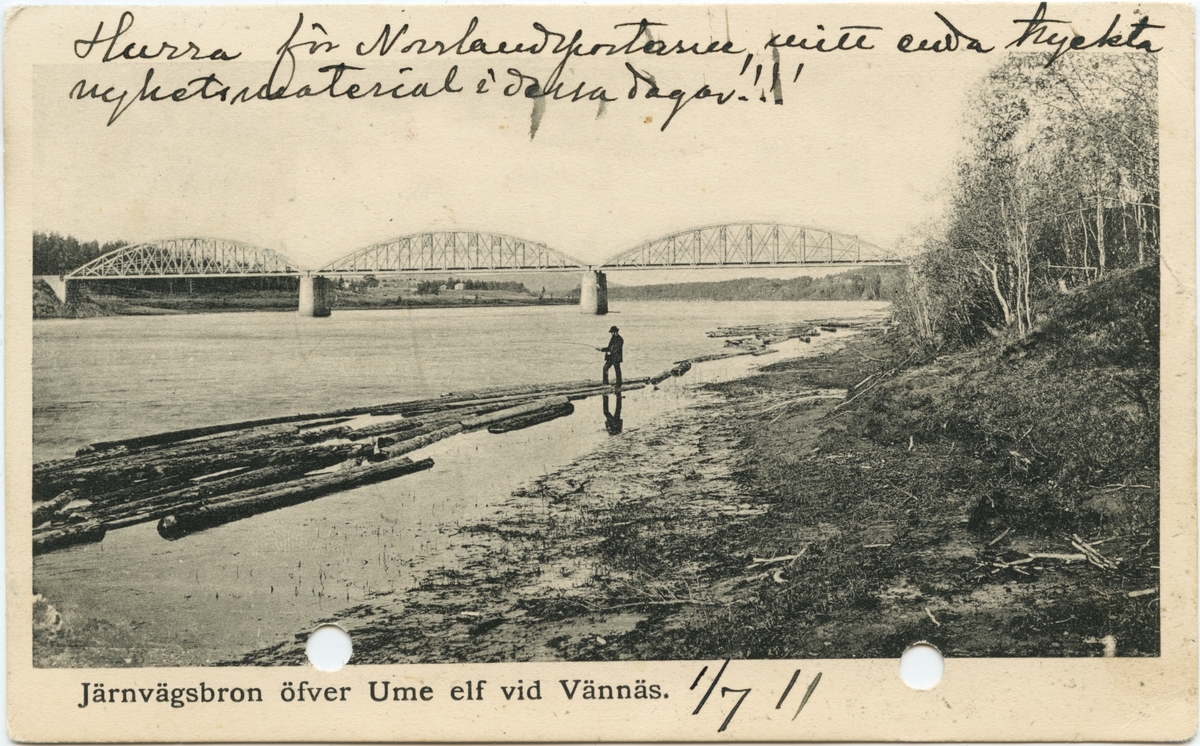 Hurra för Norrlandsposten, mitt enda tryckta
nyhetsmaterial i dessa dagar!!!
Järnvägsbron öfver Ume elf vid Vännäs. 1/7 11